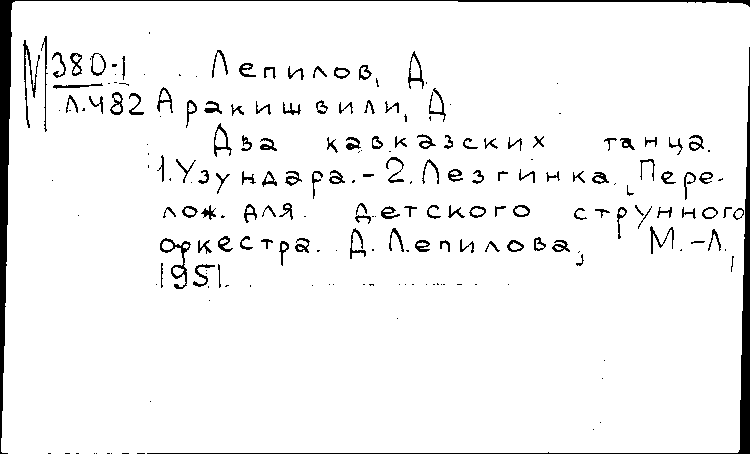 М 380-1 Лепилов, Д
Л.482 Аракишвили, Д
Два кавказских танца.
1.Узундара.-2.Лезгинка. Пере-
лож. для детского струнного
оркестра. Д. Лепилова, М.-Л.,
1951.